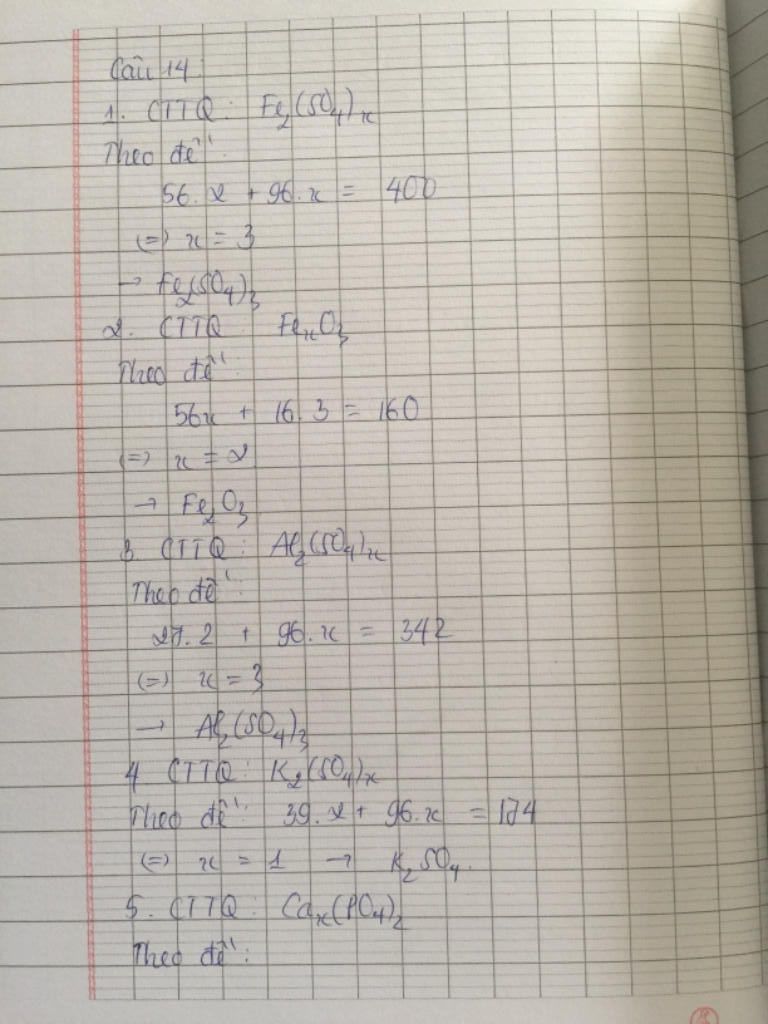 Câu 14:
1. CTTQ: Fe₂(SO₄)ₓ
Theo đề:
56.2 + 96.x = 400
(=) x = 3
→ Fe₂(SO₄)₃
2. CTTQ: FeₓO₃
Theo đề:
56x + 16.3 = 160
(=) x = 2
→ Fe₂O₃
3 CTTQ: Al₂(SO₄)ₓ
Theo đề:
27.2 + 96.x = 342
(=) x = 3
→ Al₂(SO₄)₃
4 CTTQ: K₂(SO₄)ₓ
Theo đề: 39.2 + 96.x = 174
(=) x = 1 → K₂SO₄.
5. CTTQ: Caₓ(PO₄)₂
Theo đề: